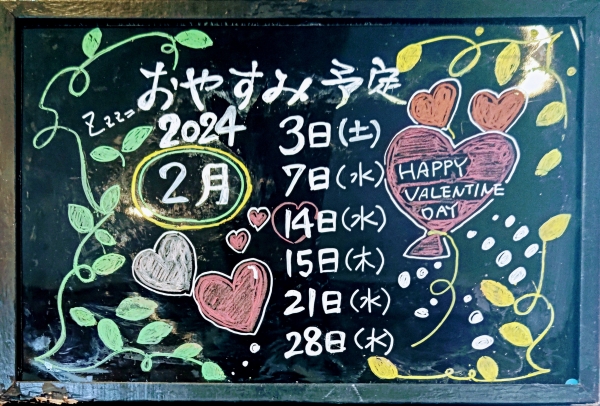 おやすみ予定
Zzz=
2024
2月
3日(土)
7日(水)
14日(水)
15日(木)
21日(水)
28日(水)
HAPPY
VALENTINE
DAY